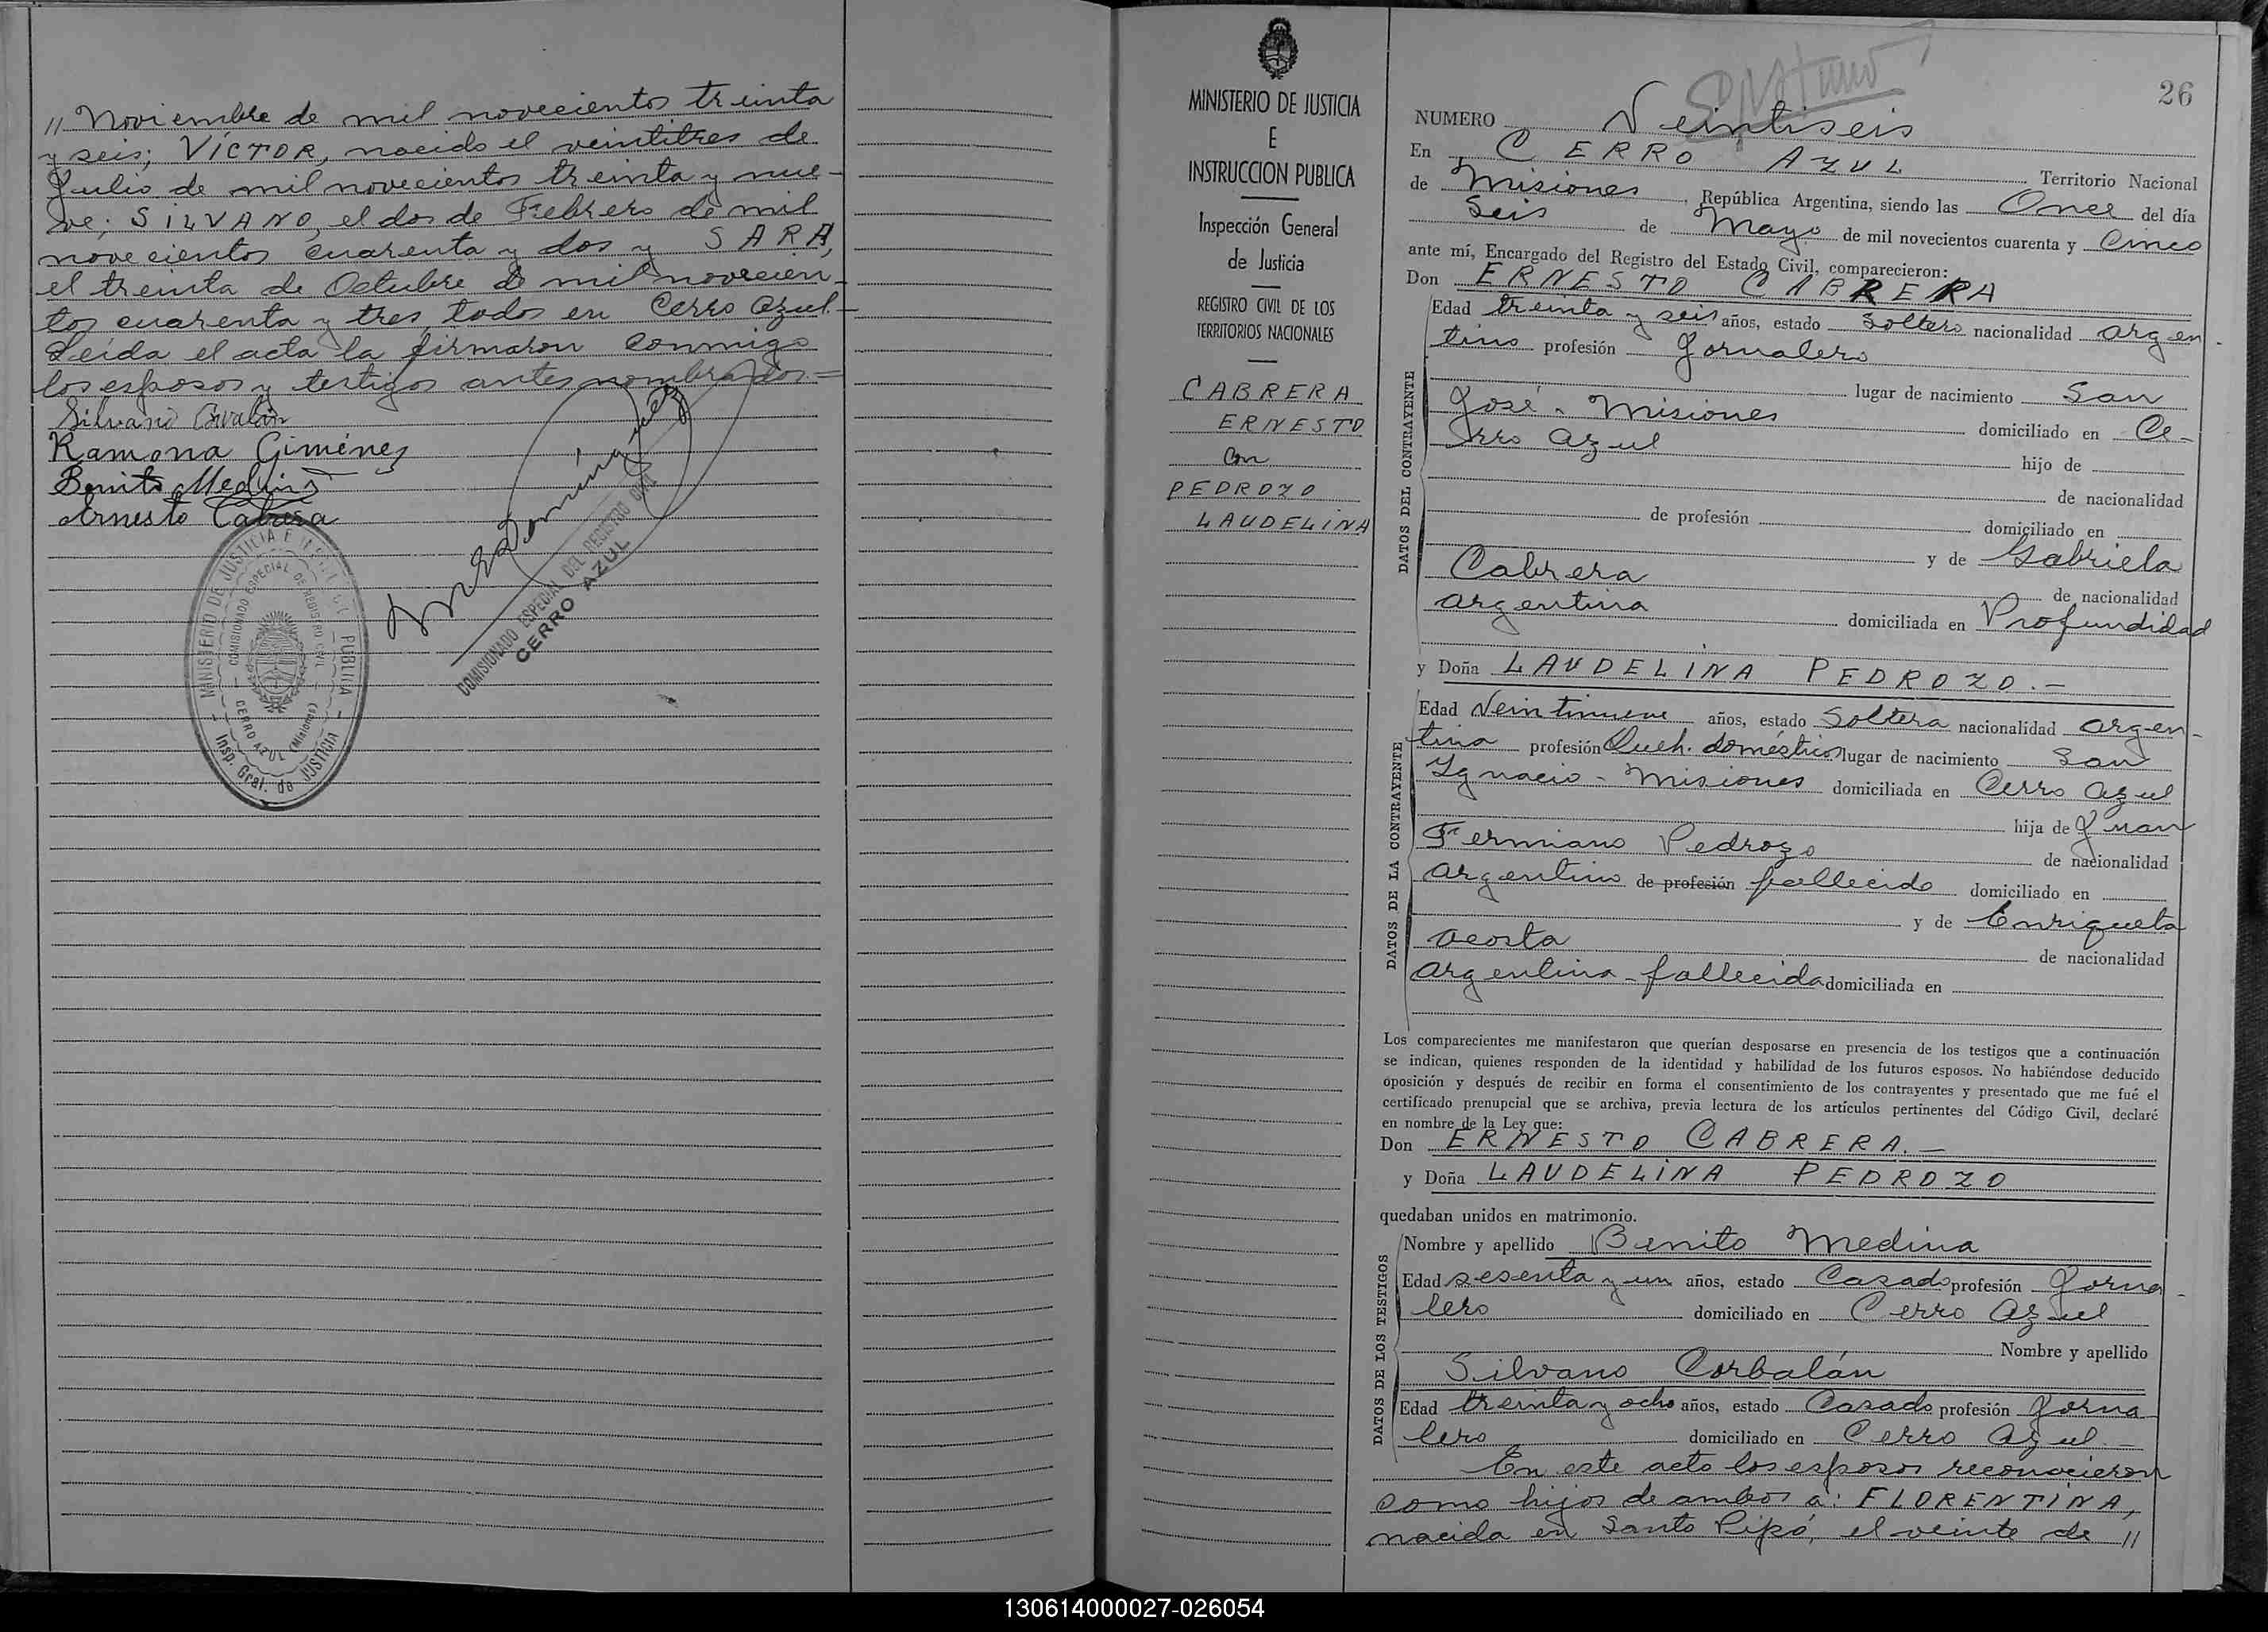 // Noviembre de mil novecientos treinta
y seis; VÍCTOR, nacido el veintitres de
Julio de mil novecientos treinta y nue-
ve; SILVANO, el dos de Febrero de mil
novecientos cuarenta y dos y SARA,
el treinta de Octubre de mil novecien-
tos cuarenta y tres, todos en Cerro Azul.-
Leída el acta la firmaron conmigo
los esposos y testigos antes nombrados.=
Silvano
Ramona Giménez
Benito Medina
Ernesto Cabrera
MINISTERIO DE JUSTICIA E PUBLICA
COMISIONADO ESPECIAL DE REGISTRO CIVIL
CERRO AZUL (Misiones)
Insp. Gral. de JUSTICIA
COMISIONADO ESPECIAL DEL REGISTRO CIVIL
CERRO AZUL
MINISTERIO DE JUSTICIA
E
INSTRUCCION PUBLICA
Inspección General
de Justicia
REGISTRO CIVIL DE LOS
TERRITORIOS NACIONALES
CABRERA
ERNESTO
Con
PEDROZO
LAUDELINA
26
NUMERO Veintiseis
En CERRO AZUL Territorio Nacional
de Misiones, República Argentina, siendo las Once del día
Seis de Mayo de mil novecientos cuarenta y Cinco
ante mí, Encargado del Registro del Estado Civil, comparecieron:
Don ERNESTO CABRERA
DATOS DEL CONTRAYENTE
Edad treinta y seis años, estado Soltero nacionalidad argen-
tino profesión Jornalero
lugar de nacimiento San
José - Misiones domiciliado en Ce-
rro Azul hijo de
de nacionalidad
de profesión domiciliado en
y de Gabriela
Cabrera de nacionalidad
argentina domiciliada en Profundidad
y Doña LAUDELINA PEDROZO.-
DATOS DE LA CONTRAYENTE
Edad Veintinueve años, estado Soltera nacionalidad argen-
tina profesión Queh. domésticos lugar de nacimiento San
Ignacio - Misiones domiciliada en Cerro Azul
hija de Juan
Fermiano Pedrozo de nacionalidad
argentino de profesión fallecido domiciliado en
y de Enriqueta
Acosta de nacionalidad
argentina - fallecida domiciliada en
Los comparecientes me manifestaron que querían desposarse en presencia de los testigos que a continuación
se indican, quienes responden de la identidad y habilidad de los futuros esposos. No habiéndose deducido
oposición y después de recibir en forma el consentimiento de los contrayentes y presentado que me fué el
certificado prenupcial que se archiva, previa lectura de los artículos pertinentes del Código Civil, declaré
en nombre de la Ley que:
Don ERNESTO CABRERA.-
y Doña LAUDELINA PEDROZO
quedaban unidos en matrimonio.
DATOS DE LOS TESTIGOS
Nombre y apellido Benito Medina
Edad sesenta y un años, estado Casado profesión Jorna-
lero domiciliado en Cerro Azul
Nombre y apellido
Silvano Corbalán
Edad treinta y ocho años, estado Casado profesión Jorna
lero domiciliado en Cerro Azul.-
En este acto los esposos reconocieron
como hijos de ambos a: FLORENTINA,
nacida en Santo Pipó, el veinte de //
130614000027-026054